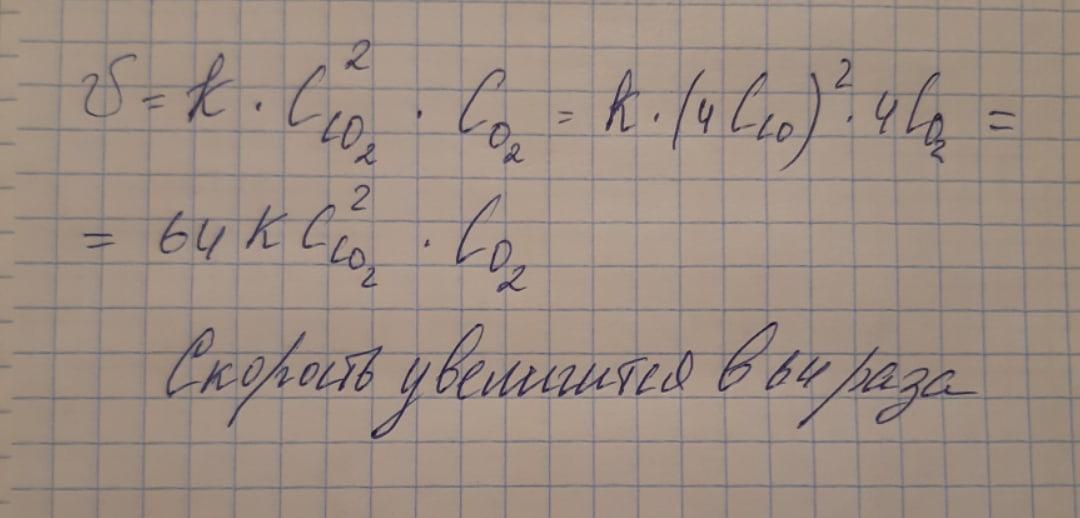 υ = k · C²CO₂ · CO₂ = k · (4CCO)² · 4CO₂ =
= 64 k C²CO₂ · CO₂
Скорость увеличится в 64 раза